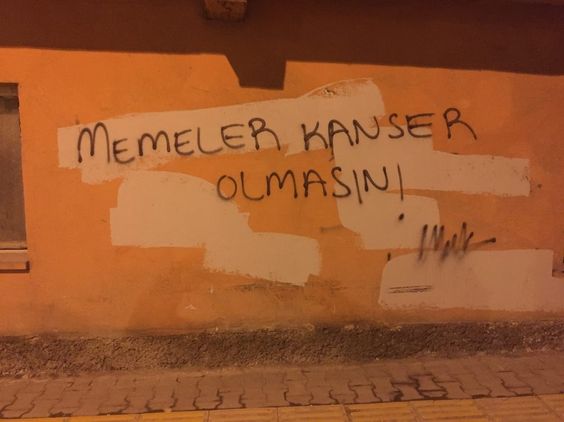 MEMELER KANSER
OLMASIN!